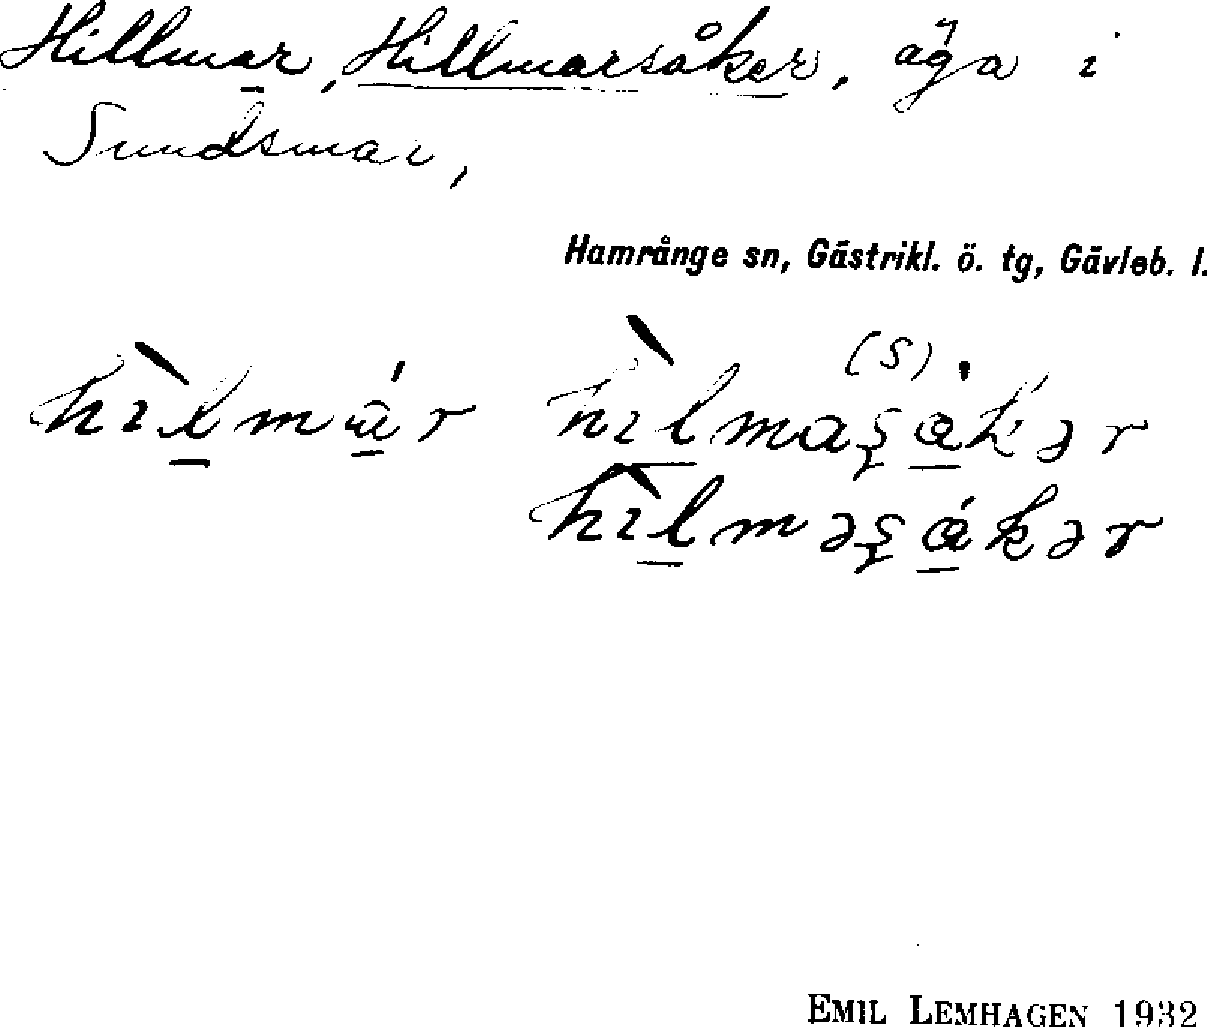 Hillmar, Hillmarsåker, äga i
Sundsmar,
Hamrånge sn, Gästrikl. ö. tg, Gävleb. l.
(s)
EMIL LEMHAGEN 1932